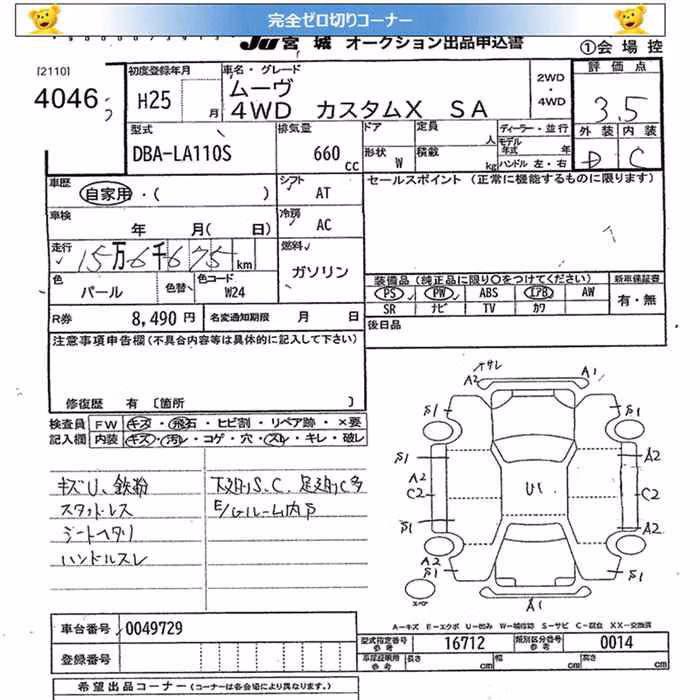 完全ゼロ切りコーナー
JU宮城 オークション出品申込書
①会場控
[2110]
4046
初度登録年月
H25 月
車名・グレード
ムーヴ
4WD カスタムX SA
2WD
・
4WD
評価点
3.5
外装 内装
D C
型式
DBA-LA110S
排気量
660 cc
ドア
形状 W
定員 人
積載 kg
ディーラー・並行
モデル年式 年
ハンドル 左・右
車歴
自家用・( )
シフト
AT
セールスポイント (正常に機能するものに限ります)
車検
年 月(日)
冷房
AC
走行
15万6千675km
燃料
ガソリン
色
パール
色替
色コード
W24
装備品(純正品に限り○をつけてください)
新車保証書
PS PW ABS エアB AW
有・無
SR ナビ TV カワ
R券 8,490円
名変通知期限 月 日
後日品
注意事項申告欄(不具合内容等は具体的に記入して下さい)
修復歴 有 [箇所 ]
検査員記入欄
FW キズ・飛石・ヒビ割・リペア跡・×要
内装 キズ・汚レ・コゲ・穴・スレ・キレ・破レ
キズU、鉄粉
スタッドレス
シートヘタリ
ハンドルスレ
下廻りS、C、足廻りC多
E/Gルーム内S
サレ
A2 A1
S1 S1
S1 A2
A2
C2 U1 C2
S1 A2
A2
S1 S1
スペア
A1
A-キズ E-エクボ U-凹み W-補修跡 S-サビ C-腐食 XX-交換済
車台番号 0049729
型式指定番号 参考 16712
類別区分番号 参考 0014
登録番号
車庫証明用 参考 長さ cm 幅 cm 高さ cm
希望出品コーナー(コーナーは各会場により異なります。)